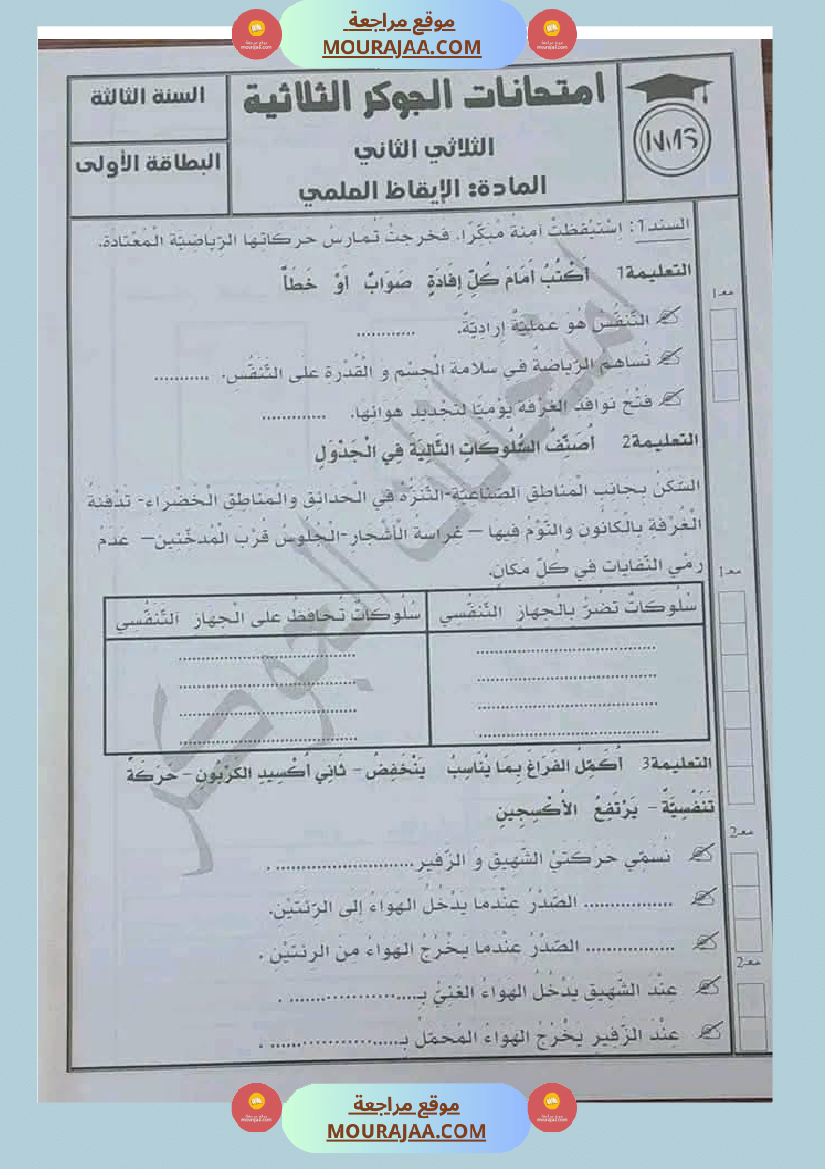 موقع مراجعة
MOURAJAA.COM
امتحانات الجوكر الثلاثية
السنة الثالثة
الثلاثي الثاني
البطاقة الأولى
المادة: الإيقاظ العلمي
NMS
السند1: اسْتَيْقَظَتْ آمنةُ مُبَكِّرًا، فَخرجتْ تُمارسُ حركاتها الرّياضيّة الْمُعْتادَة.
التعليمة1 أَكْتُبُ أَمَامَ كُلِّ إِفَادَةٍ صَوَابٌ أَوْ خَطَأٌ
مع1
التَّنفّسُ هُوَ عَمليّةٌ إراديّةٌ. ............
تُساهمُ الرّياضةُ في سلامة الْجِسْم و الْقُدْرة على التَّنَفُّسِ. ...........
فَتْحُ نوافد الغرْفة يوْميّا لتجْديد هوائها. .............
التعليمة2 أُصَنِّفُ السُّلُوكَاتِ التَّالِيَةَ فِي الْجَدْوَلِ
السّكنُ بجانب الْمناطق الصّناعيّة-التّنزّه في الْحدائق والْمناطق الْخَضْراء- تدْفئةُ
الْغُرْفة بالْكانون والنّوْمُ فيها – غراسة الْأشْجار-الْجلوسُ قُرْبَ الْمُدخّنين– عدمُ
رمْي النّفايات في كُلّ مكان.
مع1
سُلُوكاتٌ تضُرُّ بالْجهاز التّنفّسي
سُلُوكاتٌ تُحافظُ على الْجهاز التّنفّسي
التعليمة3 أُكَمِّلُ الفَرَاغَ بِمَا يُنَاسِبُ يَنْخَفِضُ - ثَانِي أُكْسِيدِ الكَرْبُونِ - حَرَكَةٌ
تَنَفُّسِيَّةٌ - يَرْتَفِعُ الأُكْسِجِينِ
مع2
نُسمّي حَركتيْ الشّهيق وَ الزّفير.......................... .
................ الصّدْرُ عنْدما يدْخُلُ الهواءُ إلَى الرّئتيْن.
................ الصّدْرُ عنْدما يخْرُجُ الهواءُ منَ الرئتيْن .
مع2
عنْدَ الشّهيق يدْخُلُ الهواءُ الغنيُّ بـ....................... .
عنْدَ الزّفير يخْرُجُ الهواءُ المُحمّلُ بـ....................... .
امتحانات الجوكر
موقع مراجعة
MOURAJAA.COM